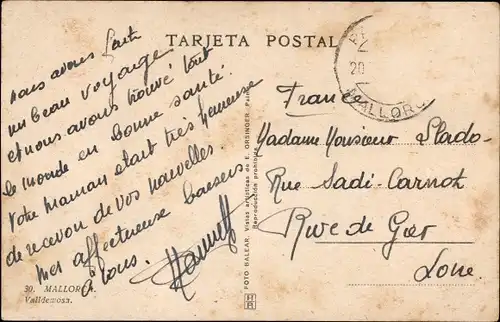 TARJETA POSTAL
nous avons fait
un beau voyage
et nous avons trouvé tout
le monde en bonne santé.
Votre maman était très heureuse
de recevoir de vos nouvelles.
Mes affectueux baisers
à tous.
30. MALLORCA.
Valldemosa.
FOTO BALEAR, Vistas artísticas de E. ORSINGER, Palma
Reproducción prohibida
20
MALLORCA
France
Madame Monsieur Plado
Rue Sadi-Carnot
Rive de Gier
Loire.